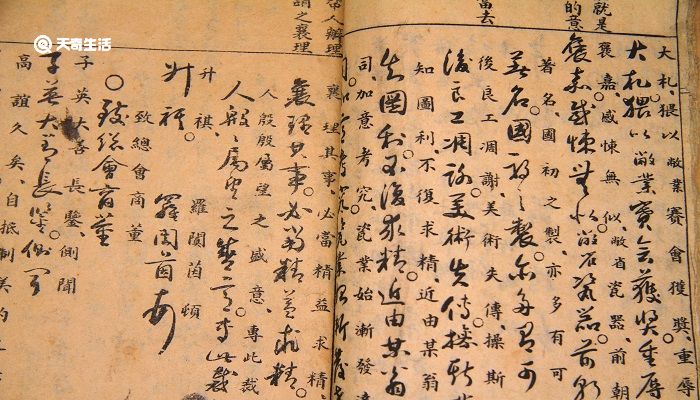 天奇生活
就是
的意
富去
大札猥以敝業賽會獲獎。重辱
大札。猥以敝業賽會獲獎。重辱
褒嘉。感悚無似。敝省瓷器。前朝
褒嘉感悚無似敝省瓷器前朝
著名。國初之製。亦多有可
著名國初之製。亦多有可
後良工凋謝。美術失傳。操斯
後良工凋謝美術失傳。操斯
知圖利。不復求精。近由某翁
知圖利不復求精。近由某翁
司。加意考究。瓷業始漸發
人辦理
謂之襄理
襄理其事。必當精益求精
襄理其事必當精益求精。
人殷殷屬望之盛意。專此裁
人殷殷屬望之盛意專此裁
升祺 羅閬茵頓
升祺 羅閬茵頓
致總會商董
致總會商董
子英大善長鑒側聞
子英大善長鑒側聞
高誼久矣。自抵制美約